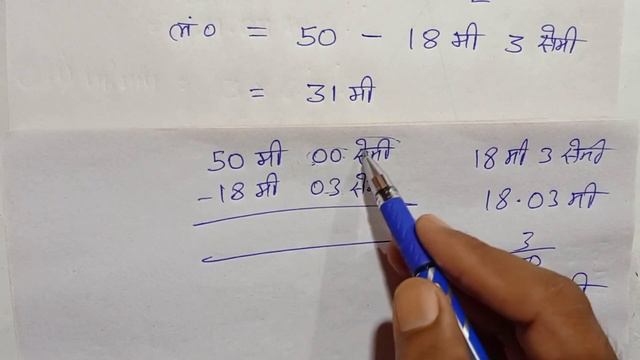 लं० = 50 - 18 मी 3 सेमी
= 31 मी
50 मी 00 सेमी
- 18 मी 03 से
18 मी 3 सेमी
18.03 मी
3